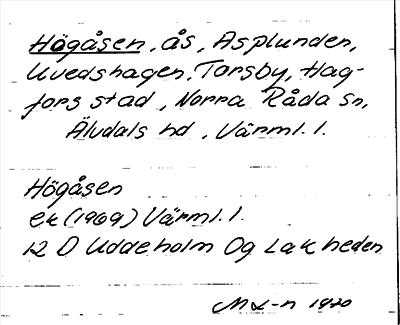 Högåsen, ås, Asplunden,
Uvedshagen, Torsby, Hag-
fors stad, Norra Råda sn,
Älvdals hd, Värml. l.
Högåsen
ek (1969) Värml. l.
12 D Uddeholm Og Lakheden
M L-n 1970